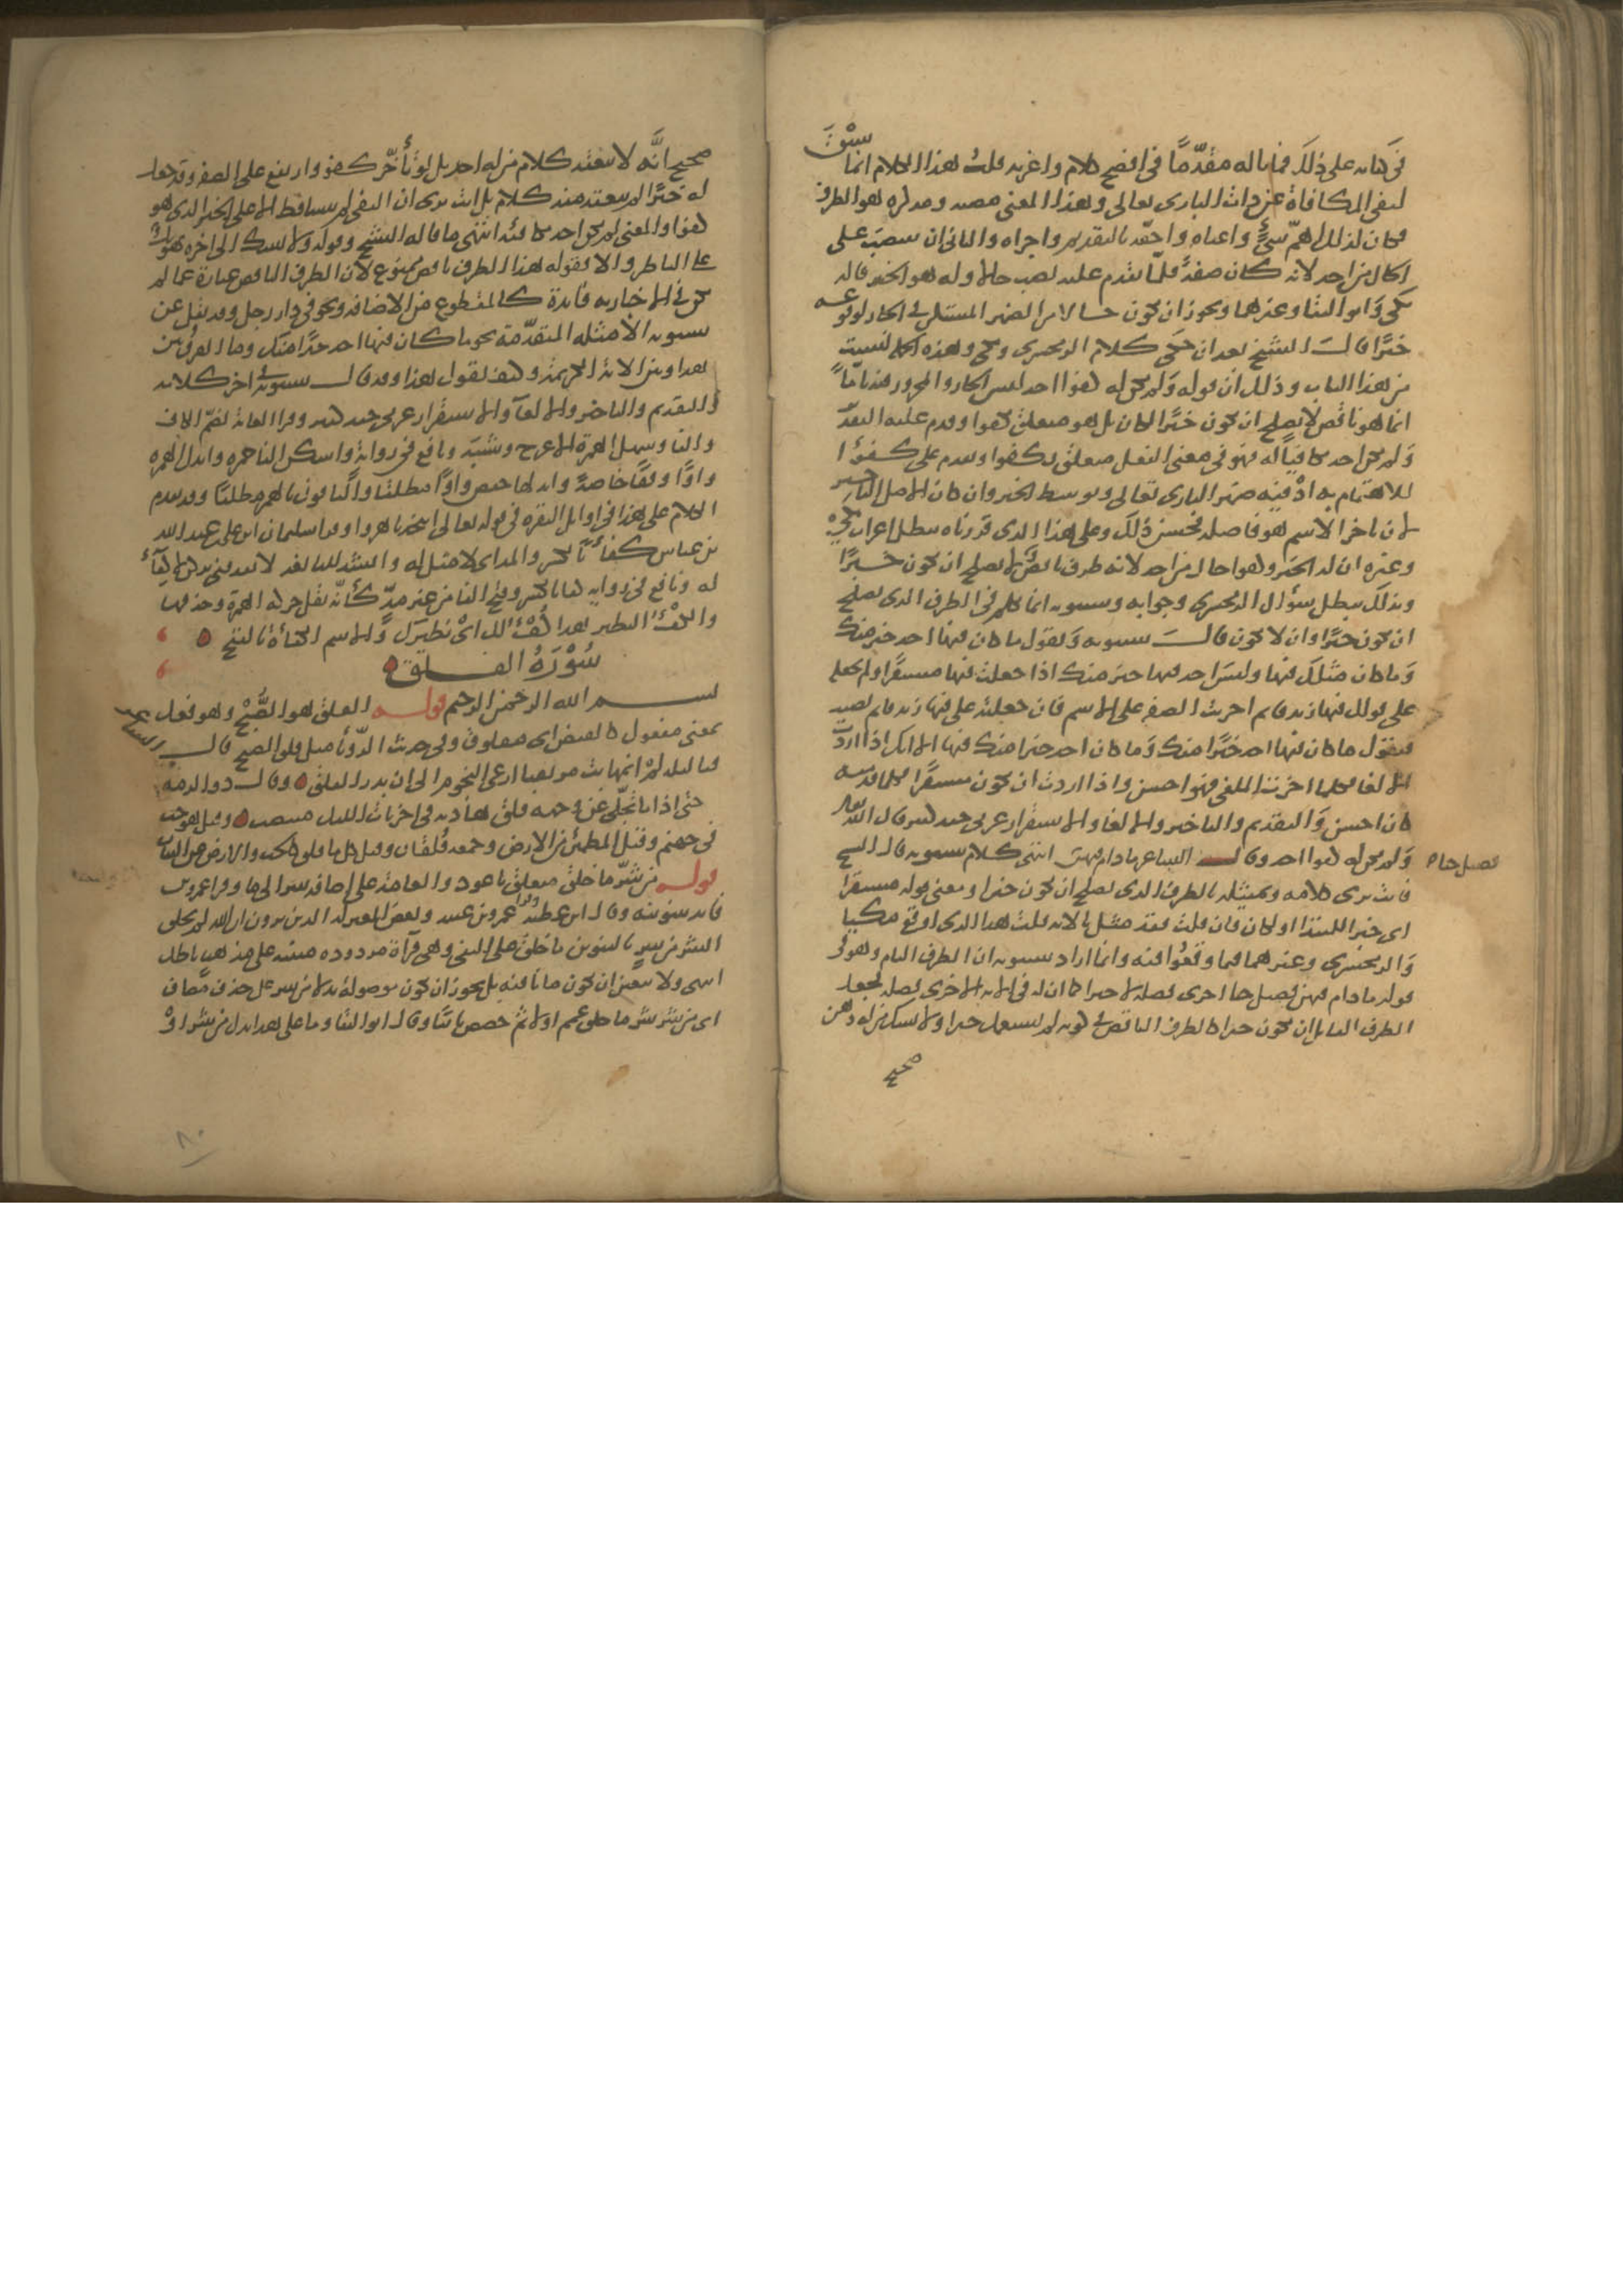 في كتابه على ذلك فما باله مقدما في افصح كلام واعربه قلت هذا الكلام انما سيق
لنفي المكافاة عن ذات الباري تعالى وهذا المعنى مصبه ومركزه هو الظرف
فكان لذلك اهم شيء واعناه واحقه بالتقديم واحراه والثاني ان ينتصب على
الحال من احد لانه كان صفة فلما تقدم عليه نصب حالا وله هو الخبر قاله
مكي وابو البقا وغيرهما ويجوز ان يكون حالا من الضمير المستكن في الجار لوقوعه
خبرا قال الشيخ بعد ان حكى كلام الزمخشري ومكي وهذه الجملة ليست
من هذا الباب وذلك ان قوله ولم يكن له كفوا احد ليس الجار والمجرور فيه تاما
انما هو ناقص لا يصلح ان يكون خبرا لكان بل هو متعلق بكفوا وقدم عليه التقدير
ولم يكن احد مكافيا له فهو في معنى المفعل متعلق بكفوا وتقدم على كفوا
للاهتمام به اذ فيه ضمير الباري تعالى وتوسط الخبر وان كان الاصل التاخير
لان تاخر الاسم هو فاصلة فحسن ذلك وعلى هذا الذي قررناه يبطل اعراب مكي
وغيره ان له الخبر وكفوا حال من احد لانه ظرف ناقص لا يصلح ان يكون خبرا
وبذلك يبطل سؤال الزمخشري وجوابه وسيبويه انما تكلم في الظرف الذي يصلح
ان يكون خبرا وان لا يكون قال سيبويه وتقول ما كان فيها احد خير منك
وما كان مثلك فيها وليس احد فيها خير منك اذا جعلت فيها مستقرا ولم تجعله
على قولك فيها زيد قايم اجريت الصفة على الاسم فان جعلته على فيها زيد قايم نصبت
فتقول ما كان فيها احد خيرا منك وما كان احد خيرا منك فيها الا انك اذا اردت
الالغا فكلما اخرت الملغى فهو احسن واذا اردت ان يكون مستقرا فكلما قدمته
كان احسن والتقديم والتاخير والالغا والاستقرار عربي جيد كثير قال الله تعالى
ولم يكن له كفوا احد وقال الشاعر ما دام فيهن فصيل حيا انتهى كلام سيبويه قال الشيخ
فانت ترى كلامه وتمثيله بالظرف الذي يصلح ان يكون خبرا ومعنى قوله مستقرا
اي خبرا للمبتدا او لكان فان قلت فقد مثل بالاية قلت هذا الذي اوقع مكيا
والزمخشري وغيرهما فيما وقعوا فيه وانما اراد سيبويه ان الظرف التام وهو في
قوله ما دام فيهن فصيل حيا اجري فضلة لا خبرا كما ان له في الاية اجري فضلة فجعل
الظرف القابل ان يكون خبرا كالظرف الناقص في كونه لم يستعمل خبرا ولا يشك من له ذهن
صحيح
صحيح انه لا ينعقد كلام من له احد بل لو تاخر كفو وارتفع على الصفة وقد جعل
له خبرا لم ينعقد منه كلام بل انت ترى ان النفي لم يتسلط الا على الخبر الذي هو
كفوا والمعنى لم يكن احد مكافئه انتهى ما قاله الشيخ وقوله ولا يشك الى اخره تهويل
على الناظر والا فقوله هذا الظرف ناقص ممنوع لان الظرف الناقص عبارة عما لم
يكن في الاخبار به فايدة كالمقطوع عن الاضافة ونحو في دار رجل وقد نقل عن
سيبويه الامثلة المتقدمة نحو ما كان فيها احد خيرا منك وما الفرق بين
هذا وبين الاية الكريمة وكيف يقول هذا وقد قال سيبويه في اخر كلامه
والتقديم والتاخير والالغا والاستقرار عربي جيد كثير وقرا العامة بضم الكاف
والفا وسهل الهمزة الاعرج وشيبة ونافع في رواية واسكن الفا حمزة وابدل الهمزة
واوا وقفا خاصة وابدلها حفص واوا مطلقا والباقون بالهمز مطلقا وقد تقدم
الكلام على هذا في اوايل البقرة في قوله تعالى اتتخذنا هزوا وقرا سليمان بن علي بن عبد الله
بن عباس كفاء بالكسر والمد اي لا مثل له وانشد للنابغة لا تقذفني بركن لا كفاء
له ونافع في رواية كفا بالكسر وفتح الفا من غير مد كأنه نقل حركة الهمزة وحذفها
والكفء النظير هذا كفء لك اي نظيرك والاسم الكفاءة بالفتح
سورة الفلق
بسم الله الرحمن الرحيم قوله الفلق هو الصبح وهو فعل
بمعنى مفعول كالقبض اي مفلوق وفي حديث الرؤيا مثل فلق الصبح قال الشاعر
يا ليلة لم انمها بت مرتفقا ارعى النجوم الى ان نور الفلق وقال ذو الرمة
حتى اذا ما تجلى عن وجهه فلق هاديه في اخريات الليل منتصب وقيل هو جب
في جهنم وقيل المطمئن من الارض وجمعه فلقان وقيل كل ما فلق كالحب والارض عن النبات
قوله من شر ما خلق متعلق باعوذ والعامة على اضافة شر الى ما وقرا عمرو بن
فايد بتنوينه وقال ابن عطية وقرا عمرو بن عبيد وبعض المعتزلة الذين يرون ان الله لم يخلق
الشر من شر بالتنوين ما خلق على النفي وهي قراة مردودة مبنية على مذهب باطل
انتهى ولا يتعين ان تكون ما نافية بل يجوز ان تكون موصولة بدلا من شر على حذف مضاف
اي من شر شر ما خلق عمم اولا ثم خصص ثانيا وقال ابو البقا وما على هذا بدل من شر او
فصيل حيا